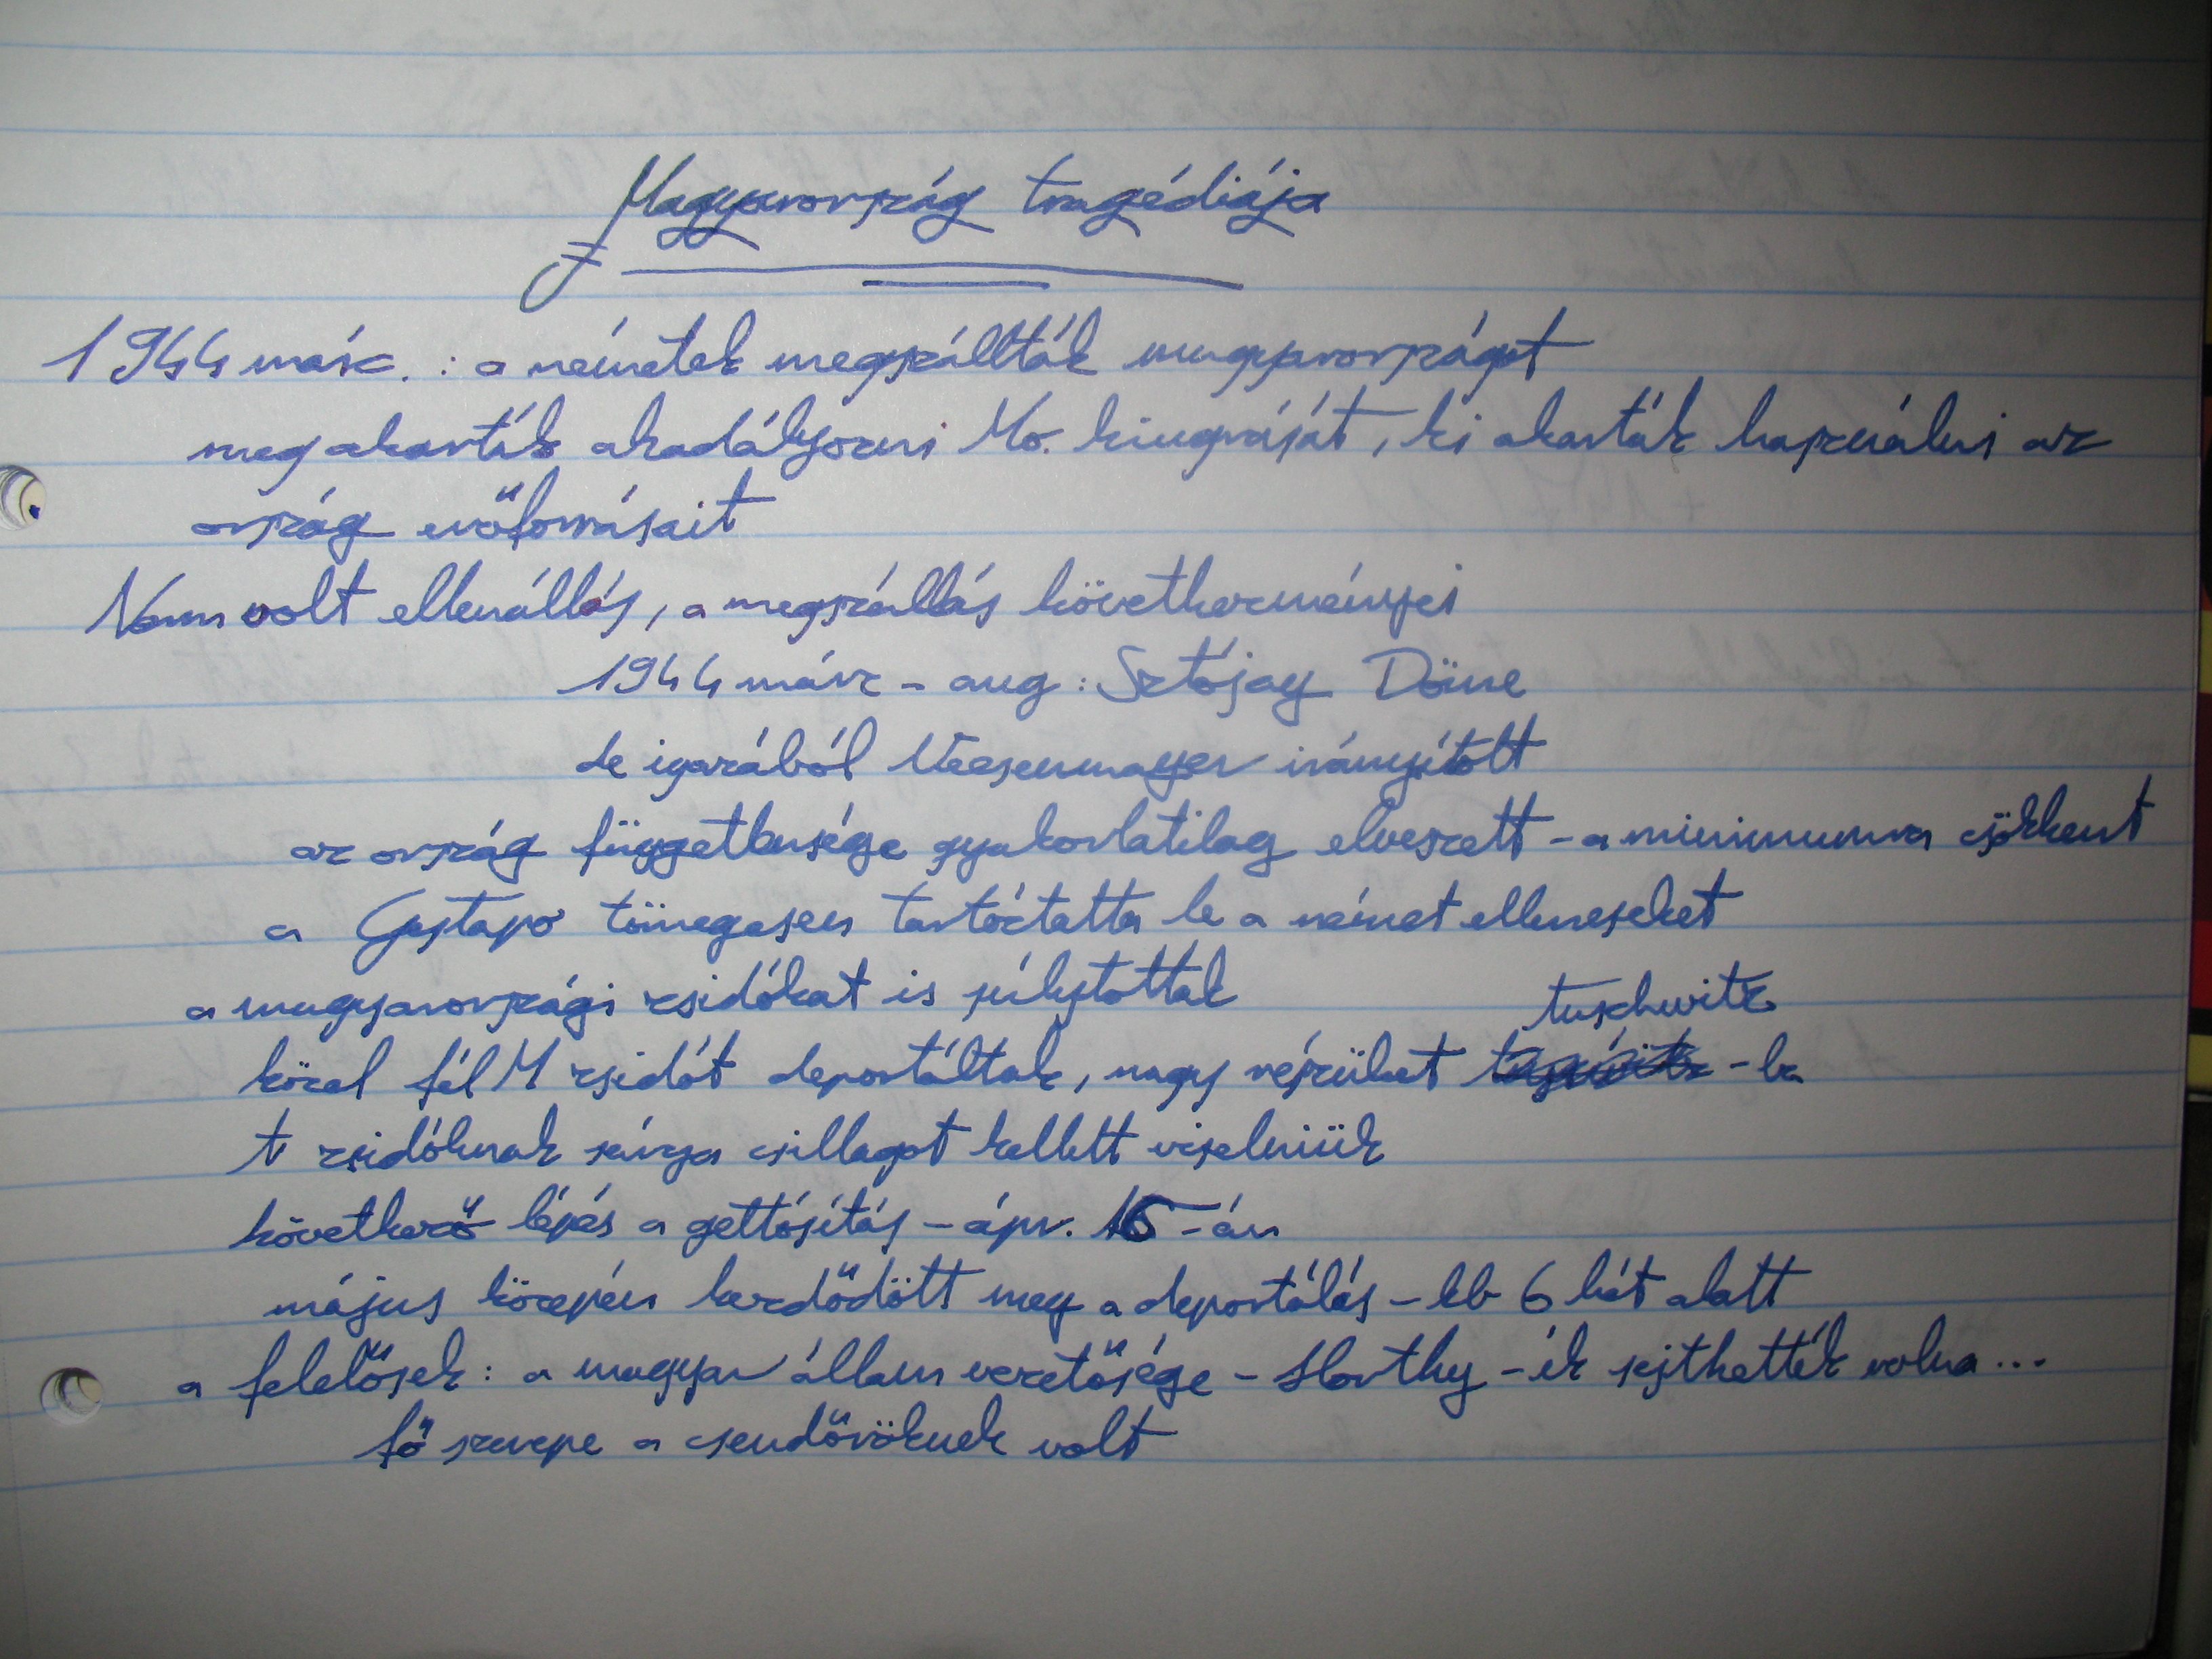 Magyarország tragédiája
1944 márc. : a németek megszállták magyarországot
meg akarták akadályozni Mo. kiugrását, ki akarták használni az
ország erőforrásait
Nem volt ellenállás, a megszállás következményei
1944 márc - aug : Sztójay Döme
de igazából Veesenmayer irányított
az ország függetlensége gyakorlatilag elveszett - a minimumra csökkent
a Gestapo tömegesen tartóztatta le a német elleneseket
a magyarországi zsidókat is súlytották
közel fél M zsidót deportáltak, nagy részüket Auschwitz -ba
A zsidóknak sárga csillagot kellett viselniük
következő lépés a gettósítás - ápr. 16 -án
május közepén kezdődött meg a deportálás - kb 6 hét alatt
a felelősek : a magyar állam vezetősége - Horthy -ék sejthették volna ...
fő szerepe a csendőröknek volt